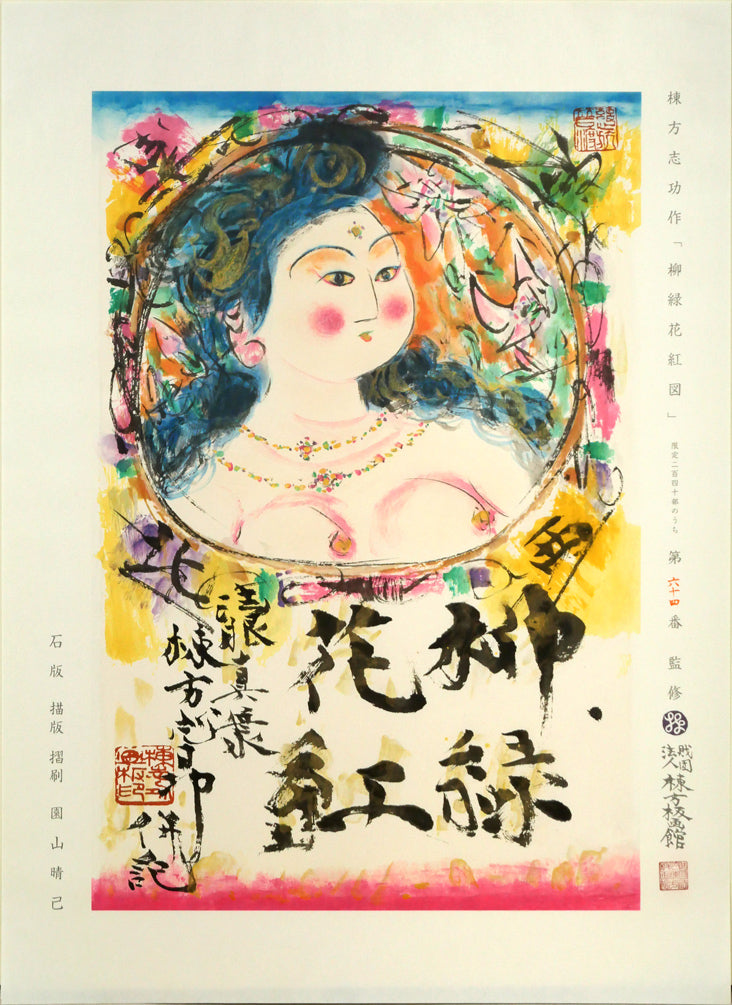 棟方志功作「柳緑花紅図」 限定二百四十部のうち 第六十四番 監修
財団法人 棟方板画館
柳緑
花紅
棟方志功
併記
石版 描版 摺刷 園山晴己